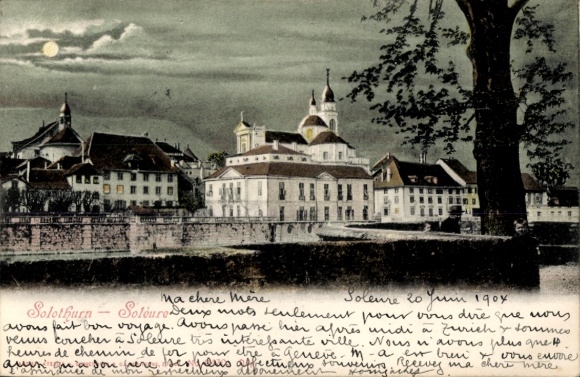 Solothurn — Soleure
Ma chere Mère Soleure 20 Juin 1904
Deux mots seulement pour vous dire que nous
avons fait bon voyage. Avons passé hier après midi à Zurich & sommes
venus coucher à Soleure très intéressante ville. Nous n'avons plus que 4
heures de chemin de fer pour être à Genève. M. a est breu & vous envoie
aussi que son père ses plus affectueux souvenirs. Recevez ma chere Mère
l'assurance de mon respectueux attachement